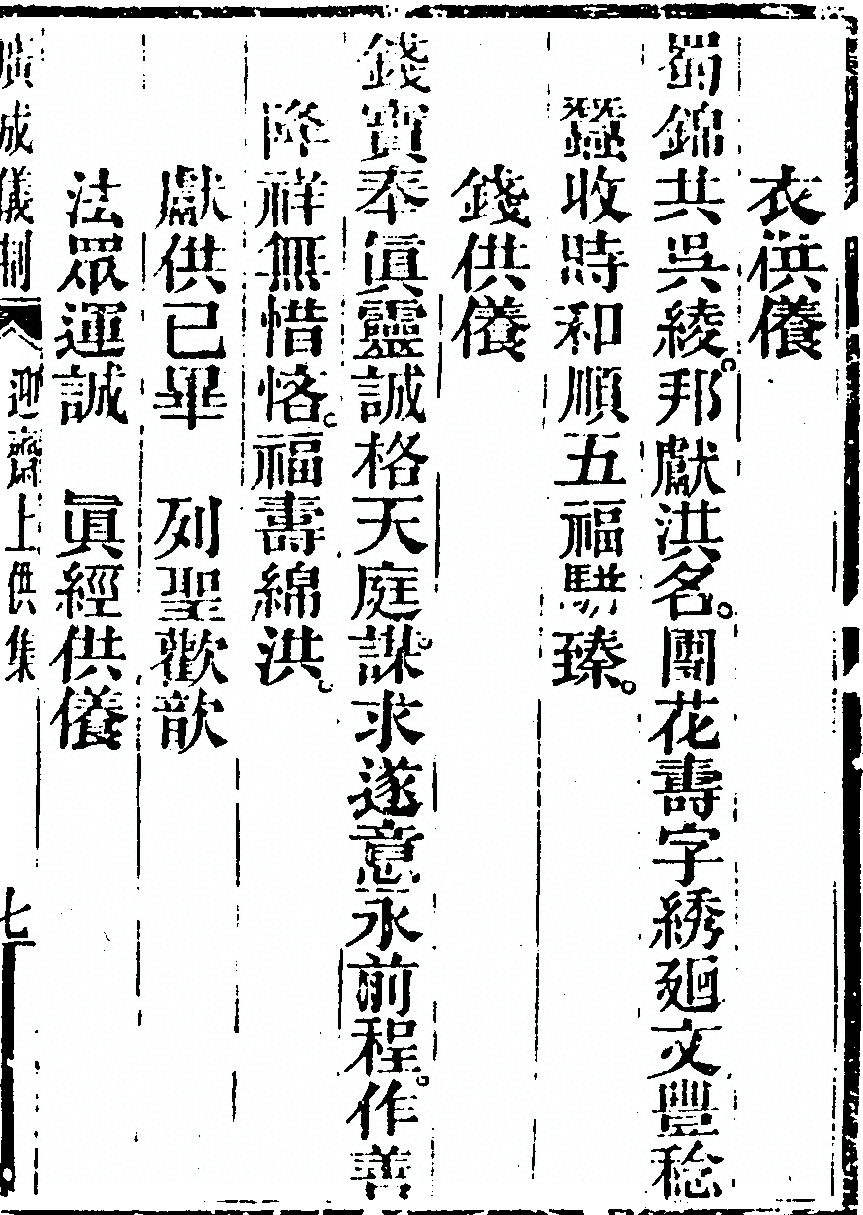 衣供養
蜀錦共吳綾。邦獻洪名。團花壽字綉廻文豐稔
蠶收時和順五福駢臻。
錢供養
錢寶奉眞靈誠格天庭。謀求遂意永前程。作善
降祥無惜恡。福壽綿洪。
獻供已畢　列聖歡歆
法眾運誠　眞經供養
廣成儀制　迎齋上供集　七